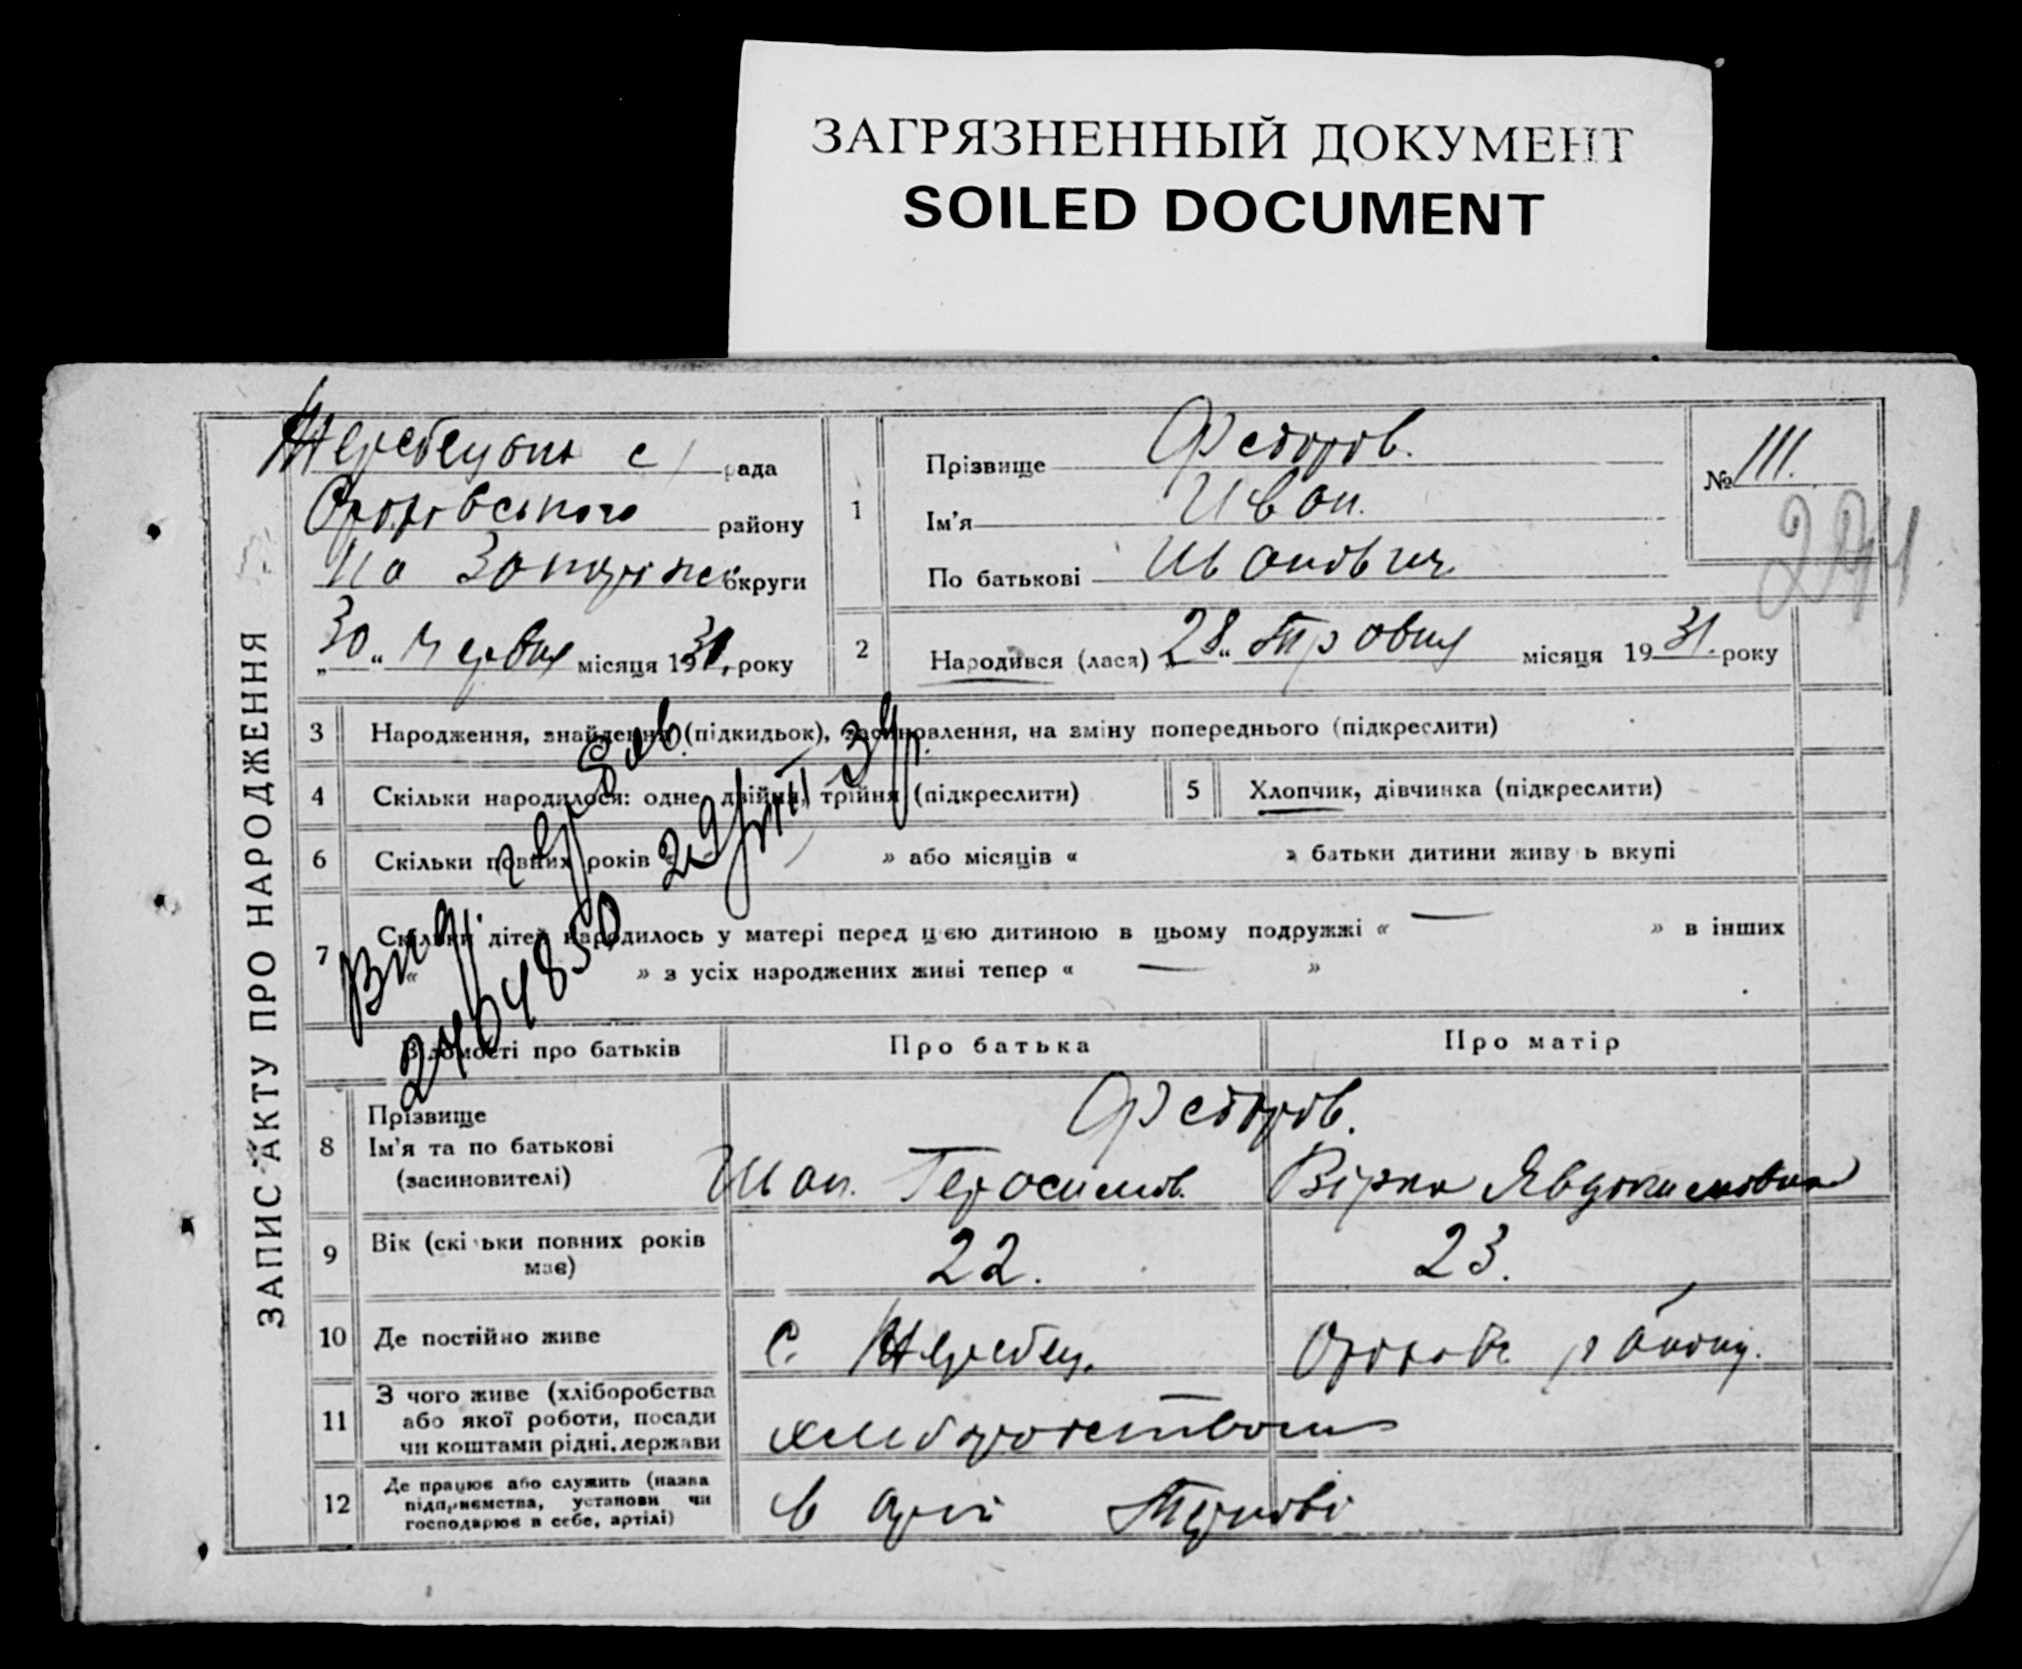 ЗАГРЯЗНЕННЫЙ ДОКУМЕНТ
SOILED DOCUMENT
ЗАПИС АКТУ ПРО НАРОДЖЕННЯ
с/рада
району
На Запоріж округи
„30“ Червня місяця 1931, року
1
Прізвище Федоров.
Ім'я Иван.
По батькові Иванович
№ 111.
274
2
Народився (лася) „28“ Травня місяця 1931. року
3 Народження, знайдення (підкидьок), засиновлення, на зміну попереднього (підкреслити)
4 Скільки народилося: одне, двійня, трійня (підкреслити)
5 Хлопчик, дівчинка (підкреслити)
6 Скільки повних років « » або місяців « » батьки дитини живуть вкупі
7 Скільки дітей народилось у матері перед цією дитиною в цьому подружжі « — » в інших
« » з усіх народжених живі тепер « — »
Відомості про батьків
Про батька
Про матір
8 Прізвище
Ім'я та по батькові
(засиновителі)
Федоров.
Иван. Герасимов.
Вірка Явдокимовна
9 Вік (скільки повних років
має)
22.
23.
10 Де постійно живе
с. Жеребец.
району.
11 З чого живе (хліборобства
або якої роботи, посади
чи коштами рідні, держави
хлиборобством
12 Де працює або служить (назва
підприємства, установи чи
господарює в себе, артілі)
в